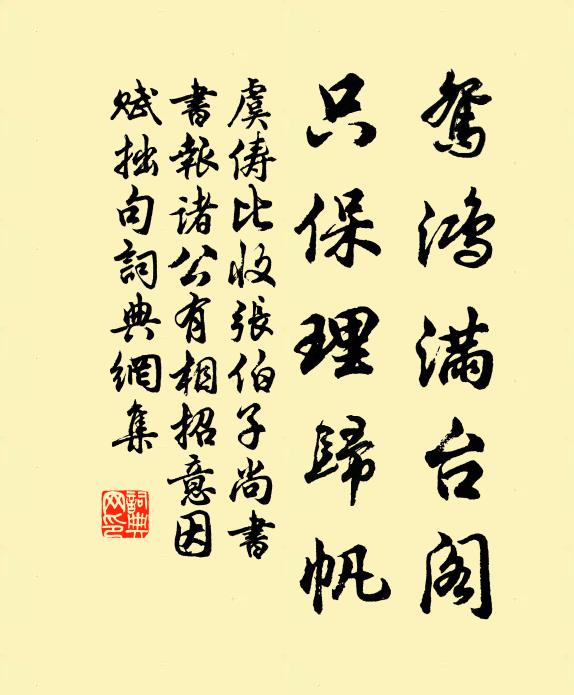 鴛鴻满台阁
只保理歸帆
虞儔比收張伯子尚書
書報诸公有相招意因
赋拙句詞典網集
詞典网印